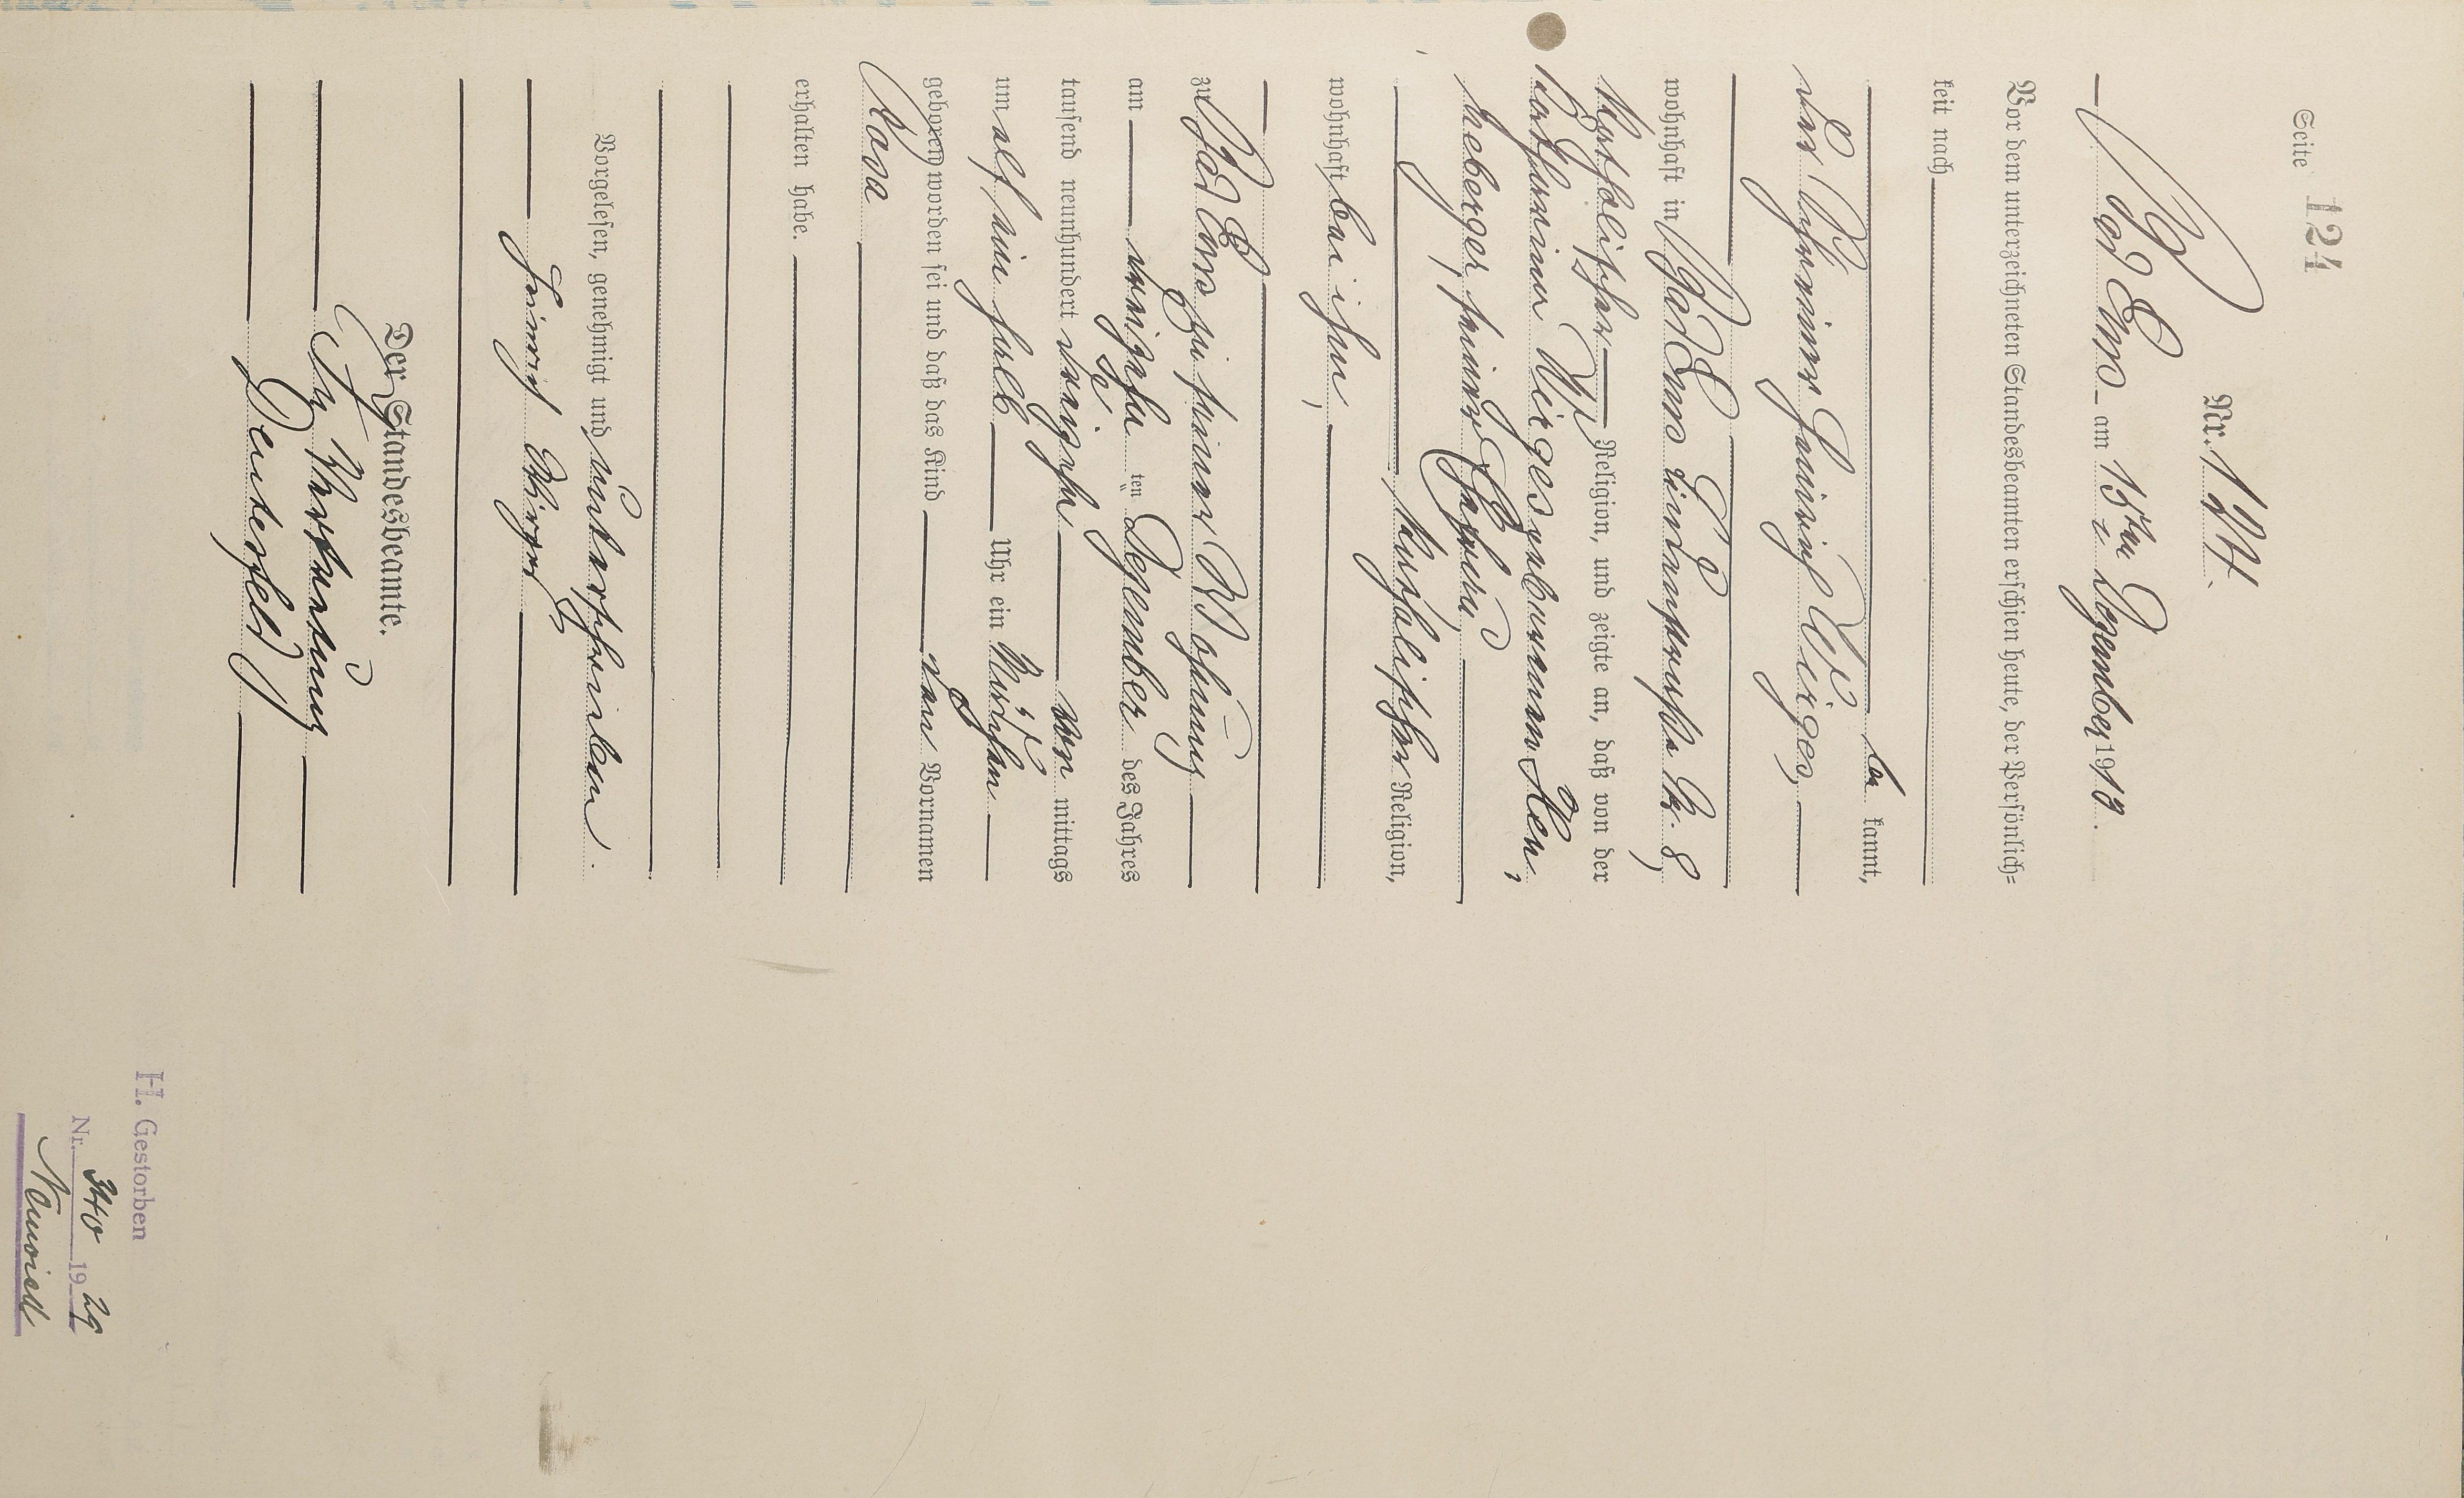 Seite 124
Nr. 124.
Bad Ems am 15ten Dezember 1913.
Vor dem unterzeichneten Standesbeamten erschien heute, der Persönlich=
keit nach
be kannt,
der Schreiner Heinrich Wirges,
wohnhaft in Bad Ems Lindenstraße Nr. 8,
katholischer Religion, und zeigte an, daß von der
Wirges geborenen
heberger, seiner Ehefrau
katholischer Religion,
wohnhaft bei ihm,
zu Bad Ems in seiner Wohnung
am dreizehn ten Dezember des Jahres
tausend neunhundert dreizehn vor mittags
um elf ein halb Uhr ein Mädchen
geboren worden sei und daß das Kind den Vornamen
Rosa
erhalten habe.
Vorgelesen, genehmigt und unterschrieben.
Heinrich Wirges
Der Standesbeamte.
In Vertretung
H. Gestorben
Nr. 340 1929
Neuwied